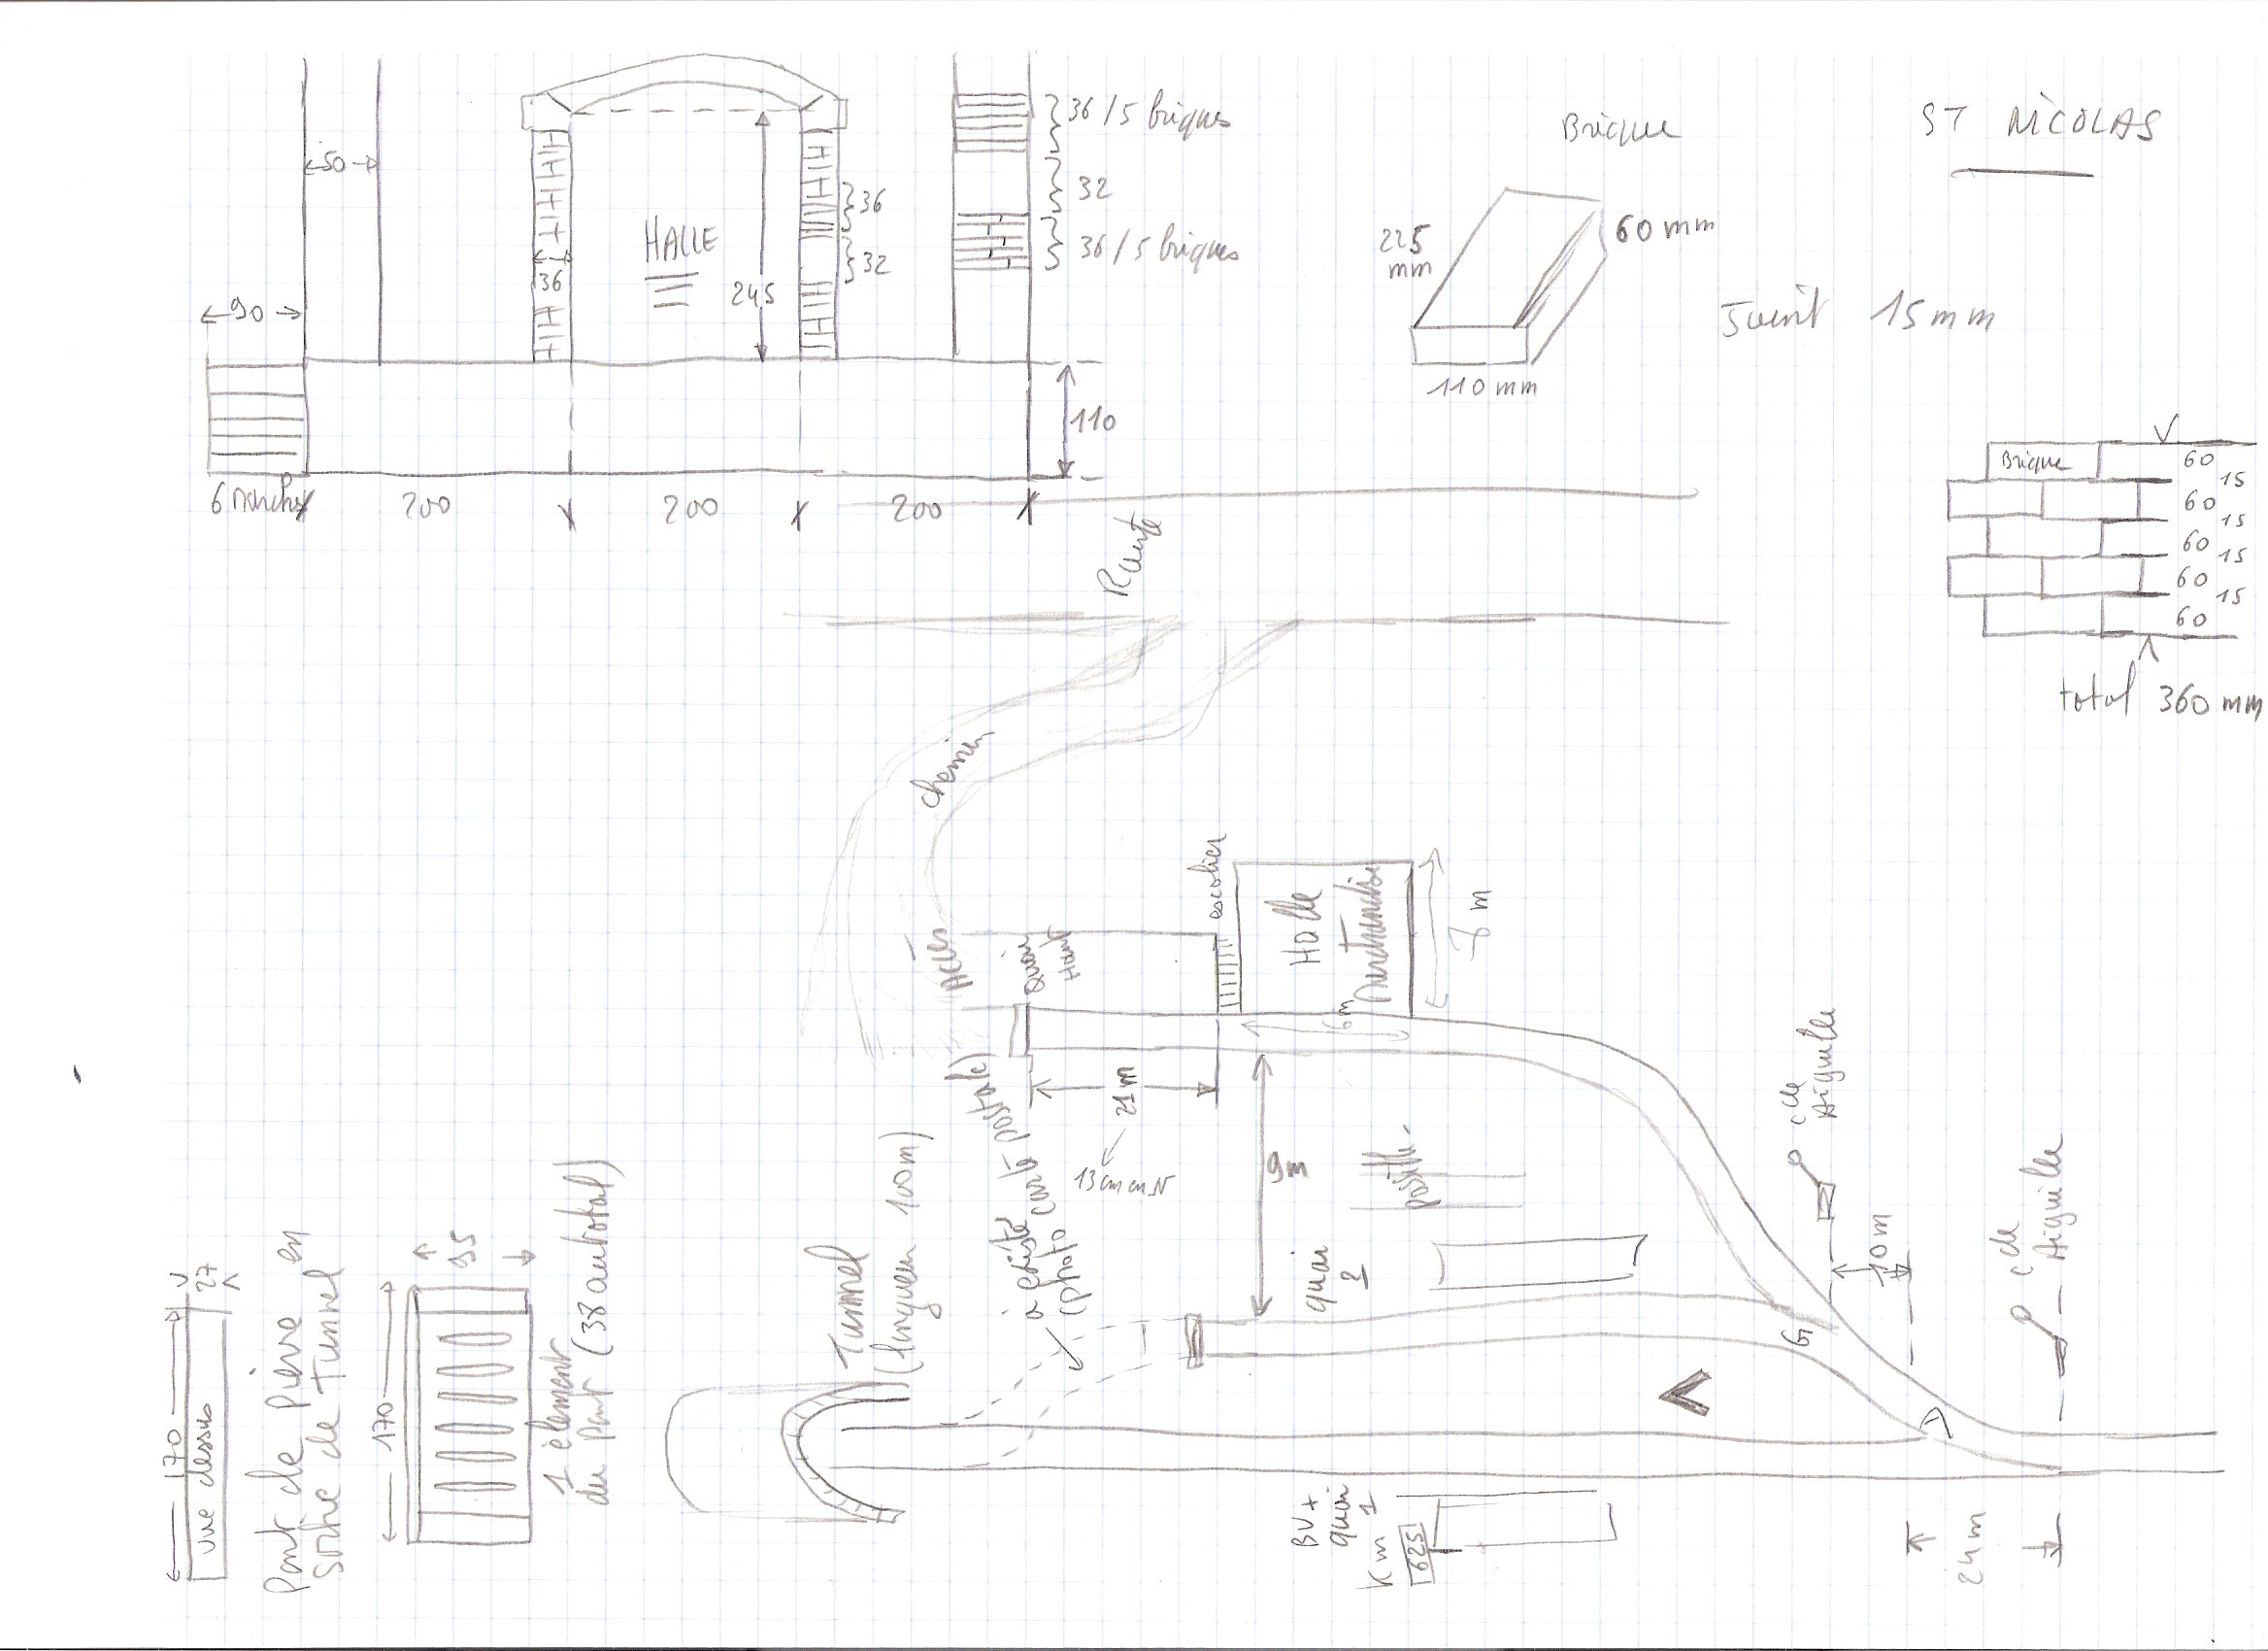 ST NICOLAS
Brique
225
mm
60 mm
110 mm
Joint 15mm
50
90
36
HALLE
245
36
32
36 / 5 briques
32
36 / 5 briques
110
6 marches
200
200
200
Brique
60
15
60
15
60
15
60
15
60
total 360 mm
Route
chemin
Accès
Quai
Haut
escalier
Halle
Marchandise
8 m
6m
21m
13 cm en N
9m
à existé
(photo carte postale)
Tunnel
(longueur 100m)
quai
2
cde
Aiguille
10m
cde
Aiguille
24m
BV +
quai
1
Km
625
170
27
vue dessus
Pont de Pierre en
sortie de Tunnel
170
95
1 élément
du pont (38 au total)